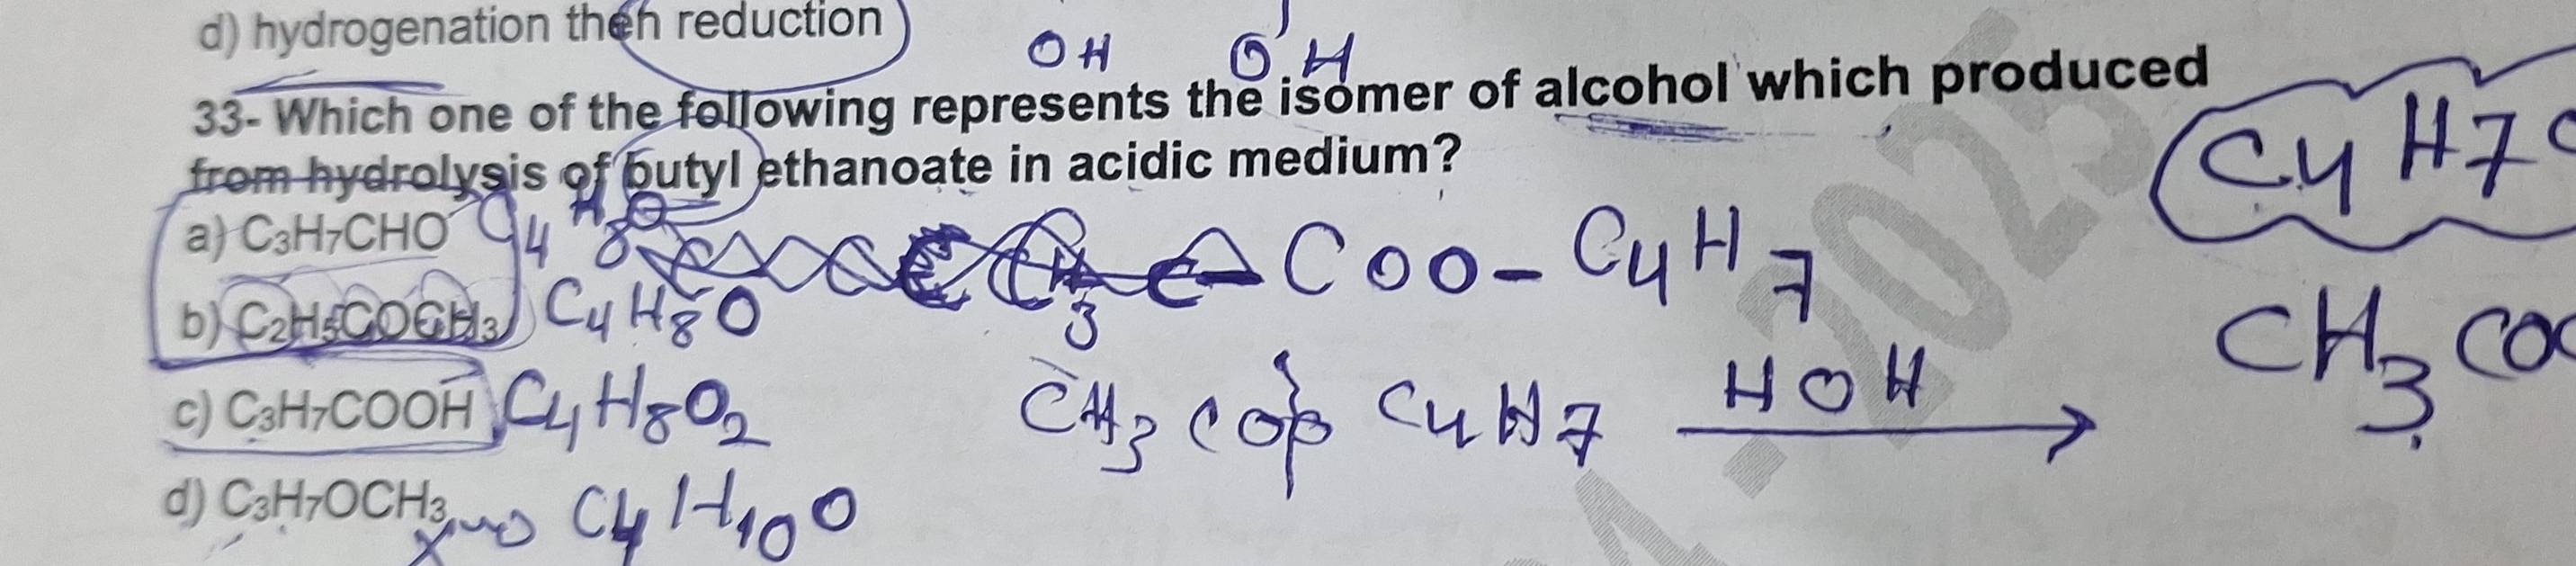 d) hydrogenation then reduction
OH OH
33- Which one of the following represents the isomer of alcohol which produced
from hydrolysis of butyl ethanoate in acidic medium?
C4H7
a) C3H7CHO C4H8O
COO-C4H7
b) C2H5COCH3 C4H8O
CH3
CH3CO
c) C3H7COOH C4H8O2
CH3COO C4H7 HOH
d) C3H7OCH3 C4H10O
2025